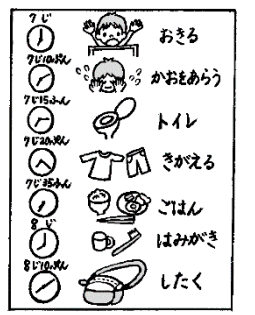 7じ
おきる
7じ10ぷん
かおをあらう
7じ15ふん
トイレ
7じ20ぷん
きがえる
7じ35ふん
ごはん
8じ
はみがき
8じ10ぷん
したく